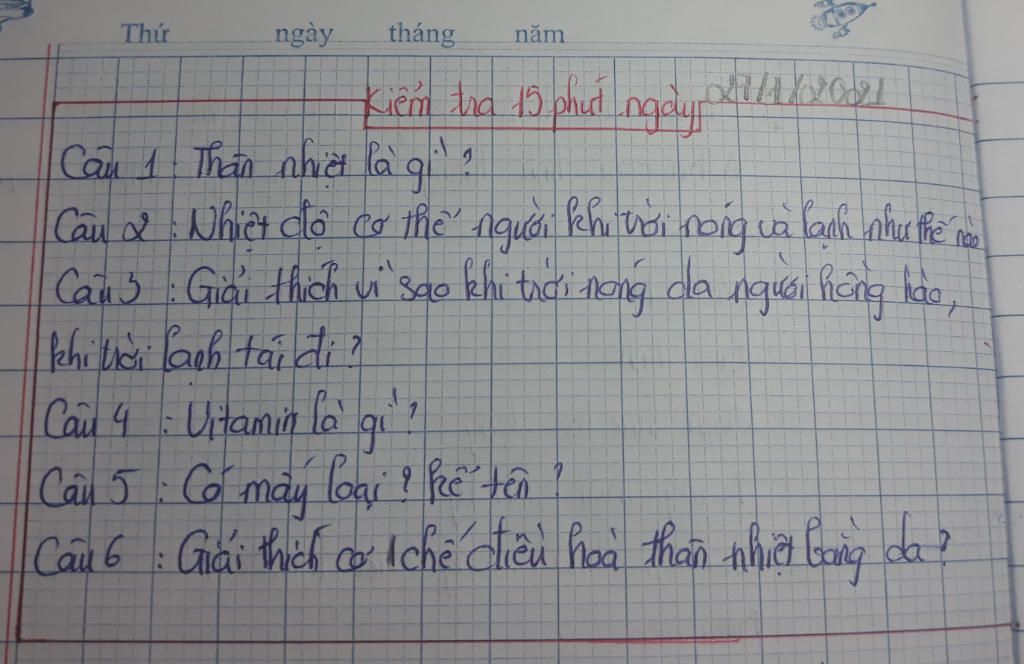 Thứ ngày tháng năm
Kiểm tra 15 phút ngày 27/1/2021
Câu 1 : Thân nhiệt là gì ?
Câu 2 : Nhiệt độ cơ thể người khi trời nóng và lạnh như thế nào
Câu 3 : Giải thích vì sao khi trời nóng da người hồng hào,
khi trời lạnh tái đi ?
Câu 4 : Vitamin là gì ?
Câu 5 : Có mấy loại ? kể tên ?
Câu 6 : Giải thích cơ chế điều hoà thân nhiệt bằng da ?